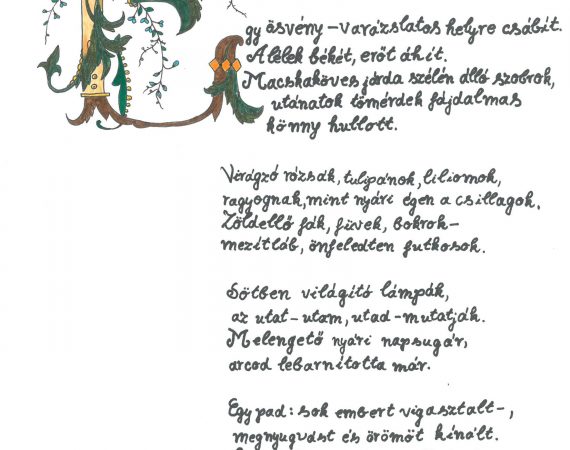 Egy ösvény – varázslatos helyre csábít.
A lélek békét, erőt áhít.
Macskaköves járda szélén álló szobrok,
utánatok tömérdek fájdalmas
könny hullott.
Virágzó rózsák, tulipánok, liliomok,
ragyognak, mint nyári égen a csillagok.
Zöldellő fák, füvek, bokrok –
mezítláb, önfeledten futkosok.
Sötben világító lámpák,
az utat – utam, utad – mutatják.
Melengető nyári napsugár,
arcod lebarnította már.
Egy pad: sok embert vigasztalt –,
megnyugvást és örömöt kínált.